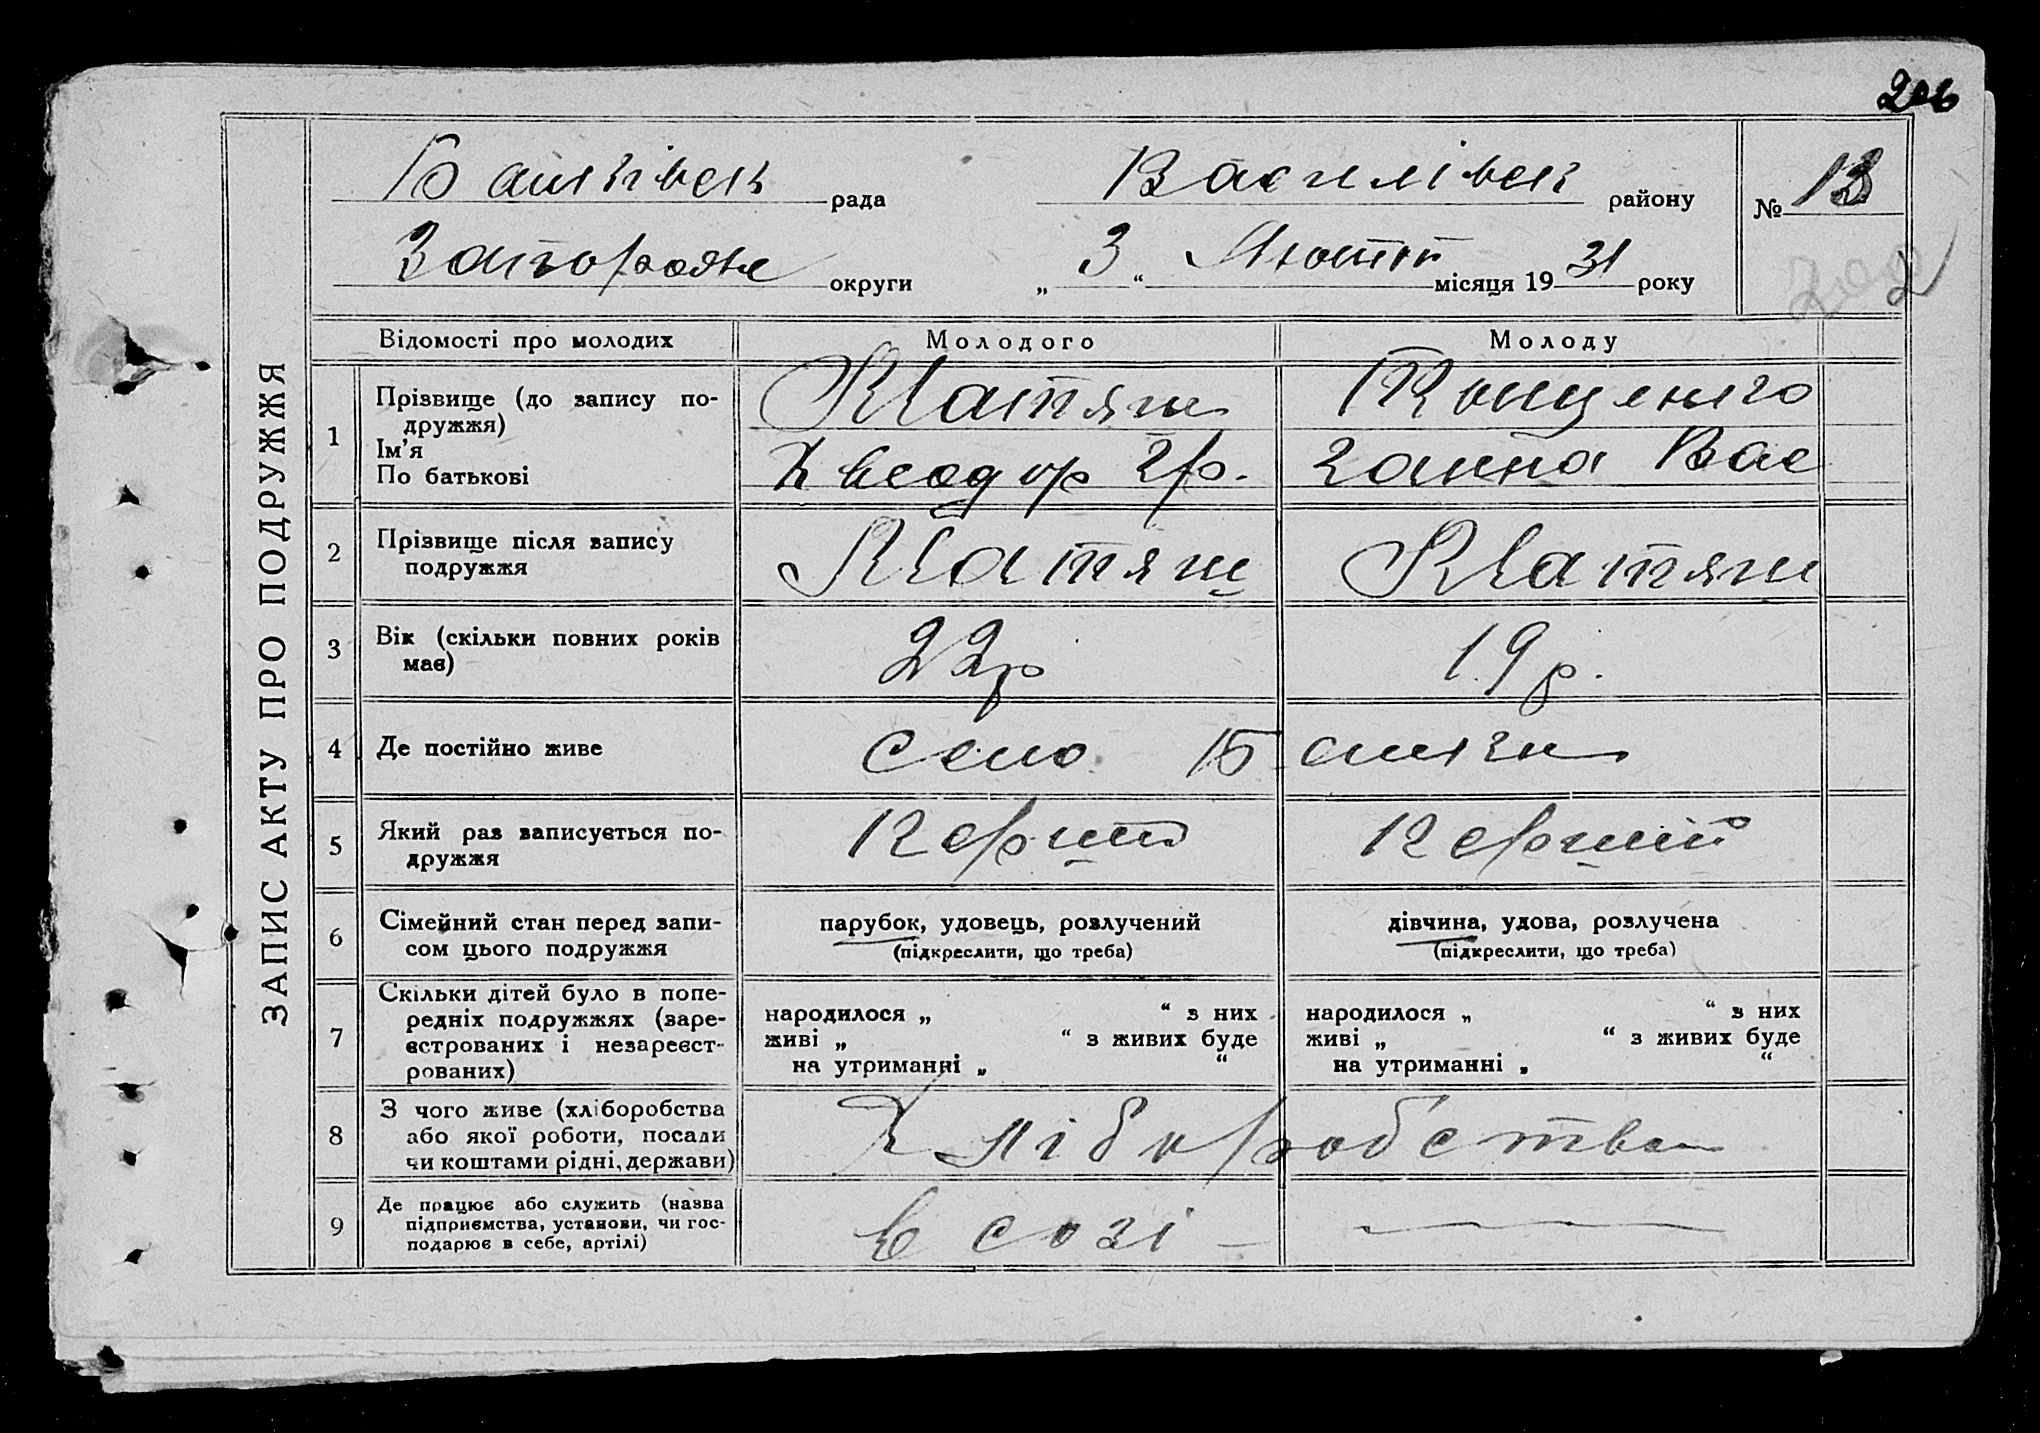 206
Балківськ рада Василівськ району № 13
Запоріжжя округи „ 3 “ Лютп місяця 19 31 року
202
ЗАПИС АКТУ ПРО ПОДРУЖЖЯ
Відомості про молодих Молодого Молоду
1 Прізвище (до запису по-
дружжя)
Ім’я
По батькові
Матяш
Хвеодор Гр.
Коценко
Ганна Вас
2 Прізвище після запису
подружжя
Матяш Матяш
3 Вік (скільки повних років
має)
22р 19р.
4 Де постійно живе село Балки
5 Який раз записується по-
дружжя
Перший Перший
6 Сімейний стан перед запи-
сом цього подружжя
парубок, удовець, розлучений
(підкреслити, що треба)
дівчина, удова, розлучена
(підкреслити, що треба)
7 Скільки дітей було в попе-
редніх подружжях (заре-
єстрованих і незареєст-
рованих)
народилося „ “ з них
живі „ “ з живих буде
на утриманні „ “
народилося „ “ з них
живі „ “ з живих буде
на утриманні „ “
8 З чого живе (хліборобства
або якої роботи, посади
чи коштами рідні, держави)
Хліборобства
9 Де працює або служить (назва
підприємства, установи, чи гос-
подарює в себе, артілі)
в созі — —